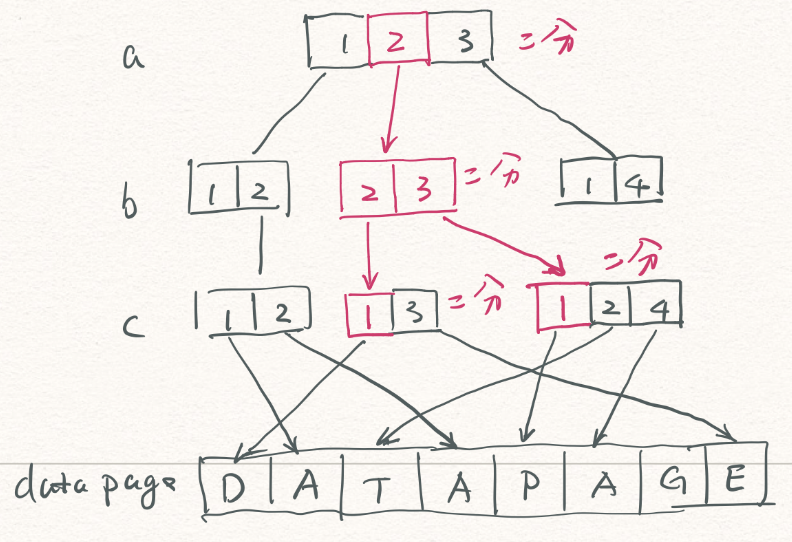 a 1 2 3 二分
b 1 2 2 3 二分 1 4
二分
c 1 2 1 3 二分 1 2 4
data page D A T A P A G E